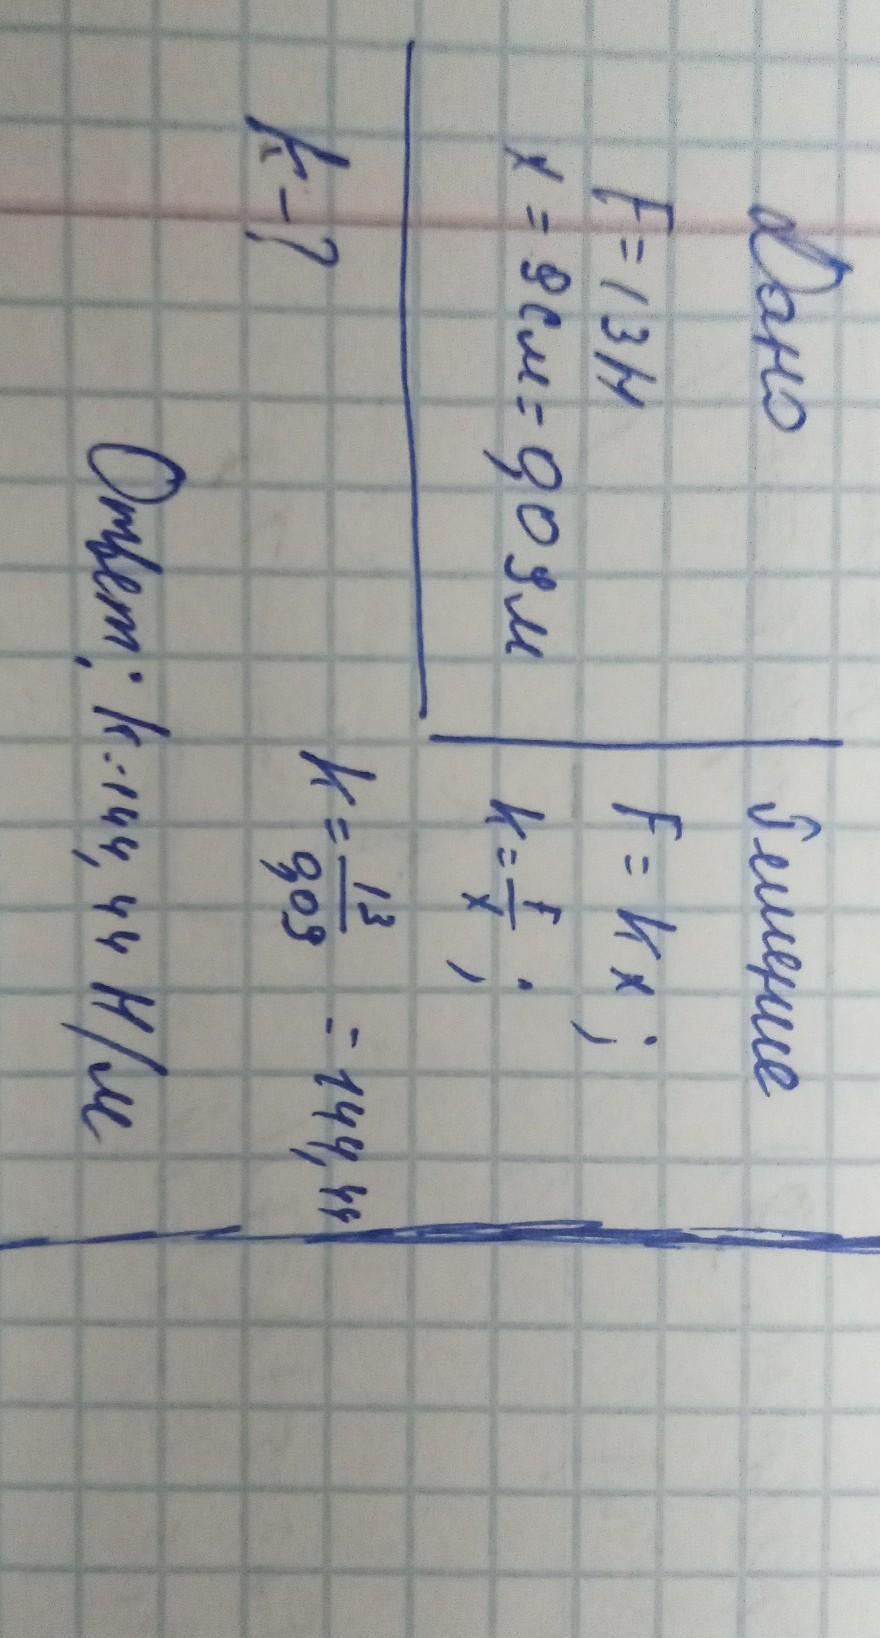 Дано
F = 13 Н
x = 9 см = 0,09 м
k - ?
Решение
F = k x ;
k = F/x ;
k = 13/0,09 = 144,44
Ответ: k = 144,44 Н/м